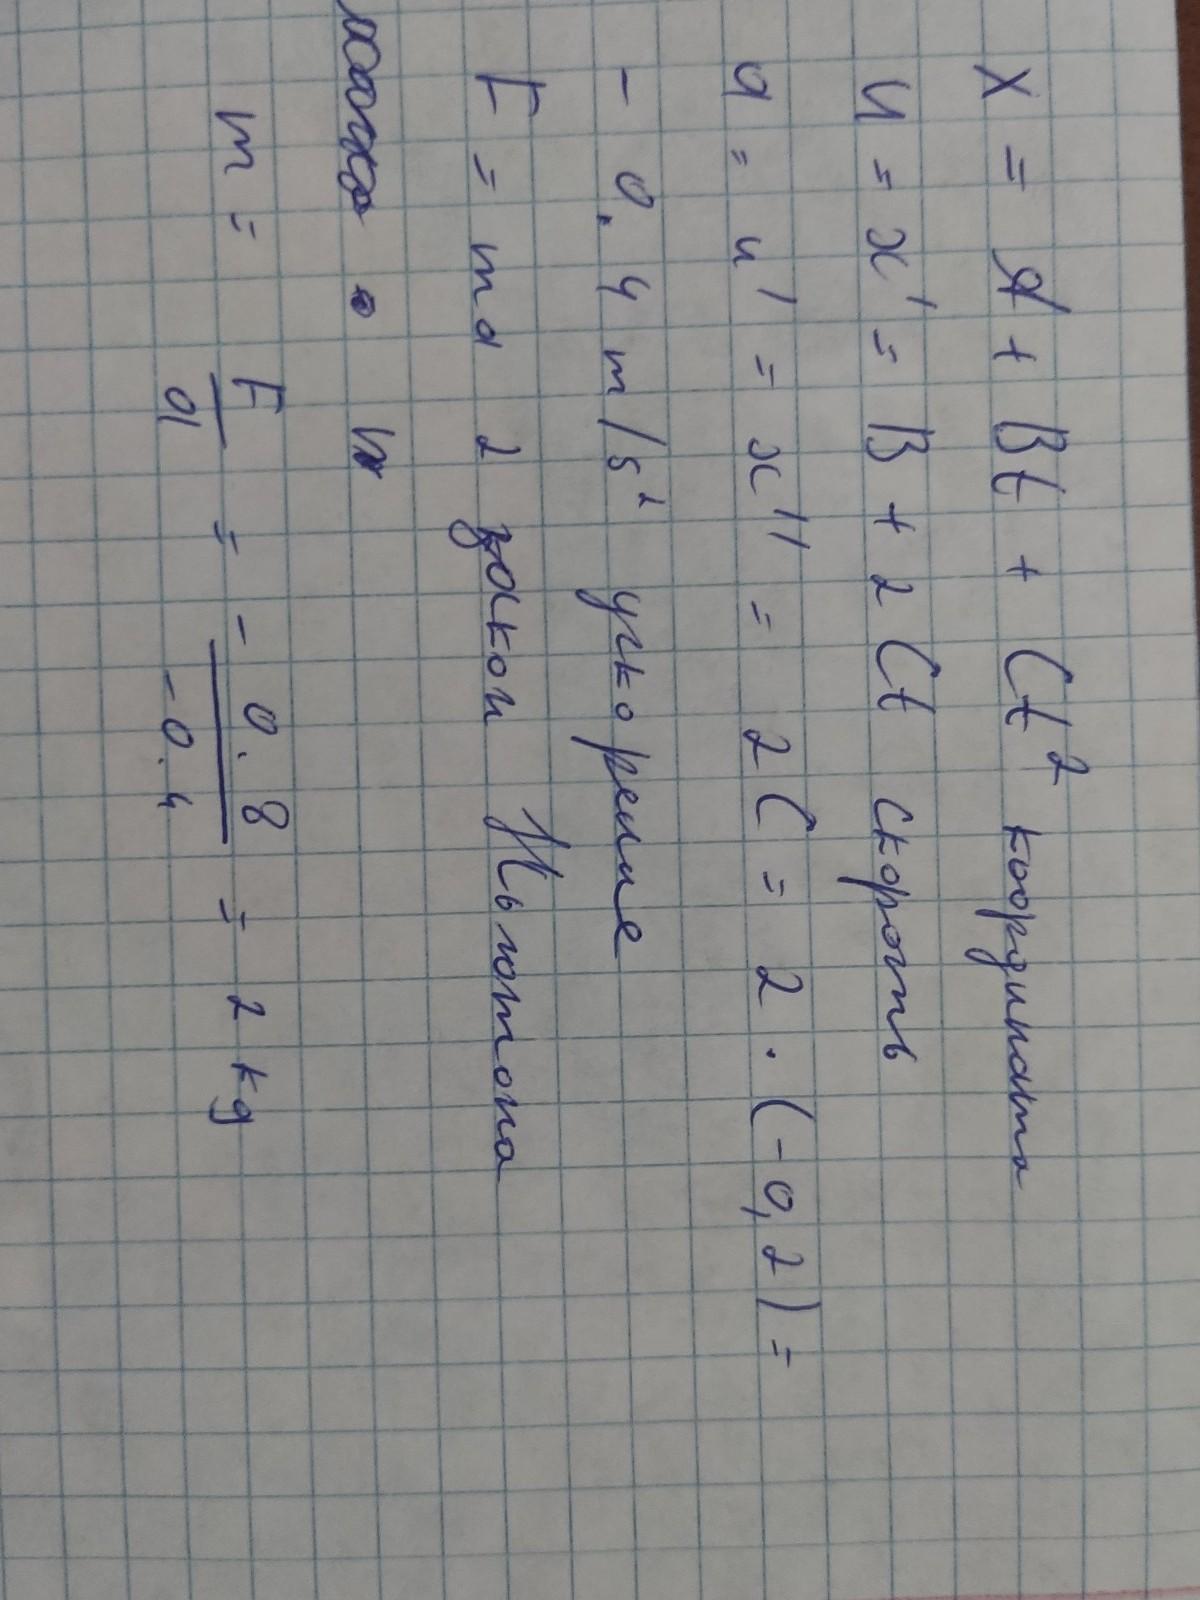 X = A + Bt + Ct² координата
u = x' = B + 2Ct скорость
a = u' = x'' = 2C = 2 · (-0,2) =
- 0.4 m/s² ускорение
F = ma 2 закон Ньютона
m = F/a = - 0.8/-0.4 = 2 kg